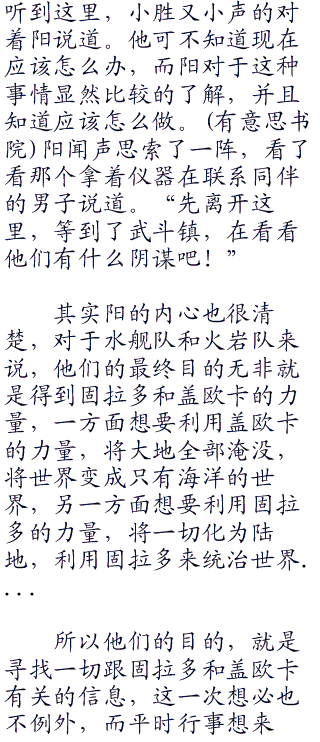 听到这里，小胜又小声的对
着阳说道。他可不知道现在
应该怎么办，而阳对于这种
事情显然比较的了解，并且
知道应该怎么做。(有意思书
院)阳闻声思索了一阵，看了
看那个拿着仪器在联系同伴
的男子说道。“先离开这
里，等到了武斗镇，在看看
他们有什么阴谋吧！”
其实阳的内心也很清
楚，对于水舰队和火岩队来
说，他们的最终目的无非就
是得到固拉多和盖欧卡的力
量，一方面想要利用盖欧卡
的力量，将大地全部淹没，
将世界变成只有海洋的世
界，另一方面想要利用固拉
多的力量，将一切化为陆
地，利用固拉多来统治世界.
...
所以他们的目的，就是
寻找一切跟固拉多和盖欧卡
有关的信息，这一次想必也
不例外，而平时行事想来